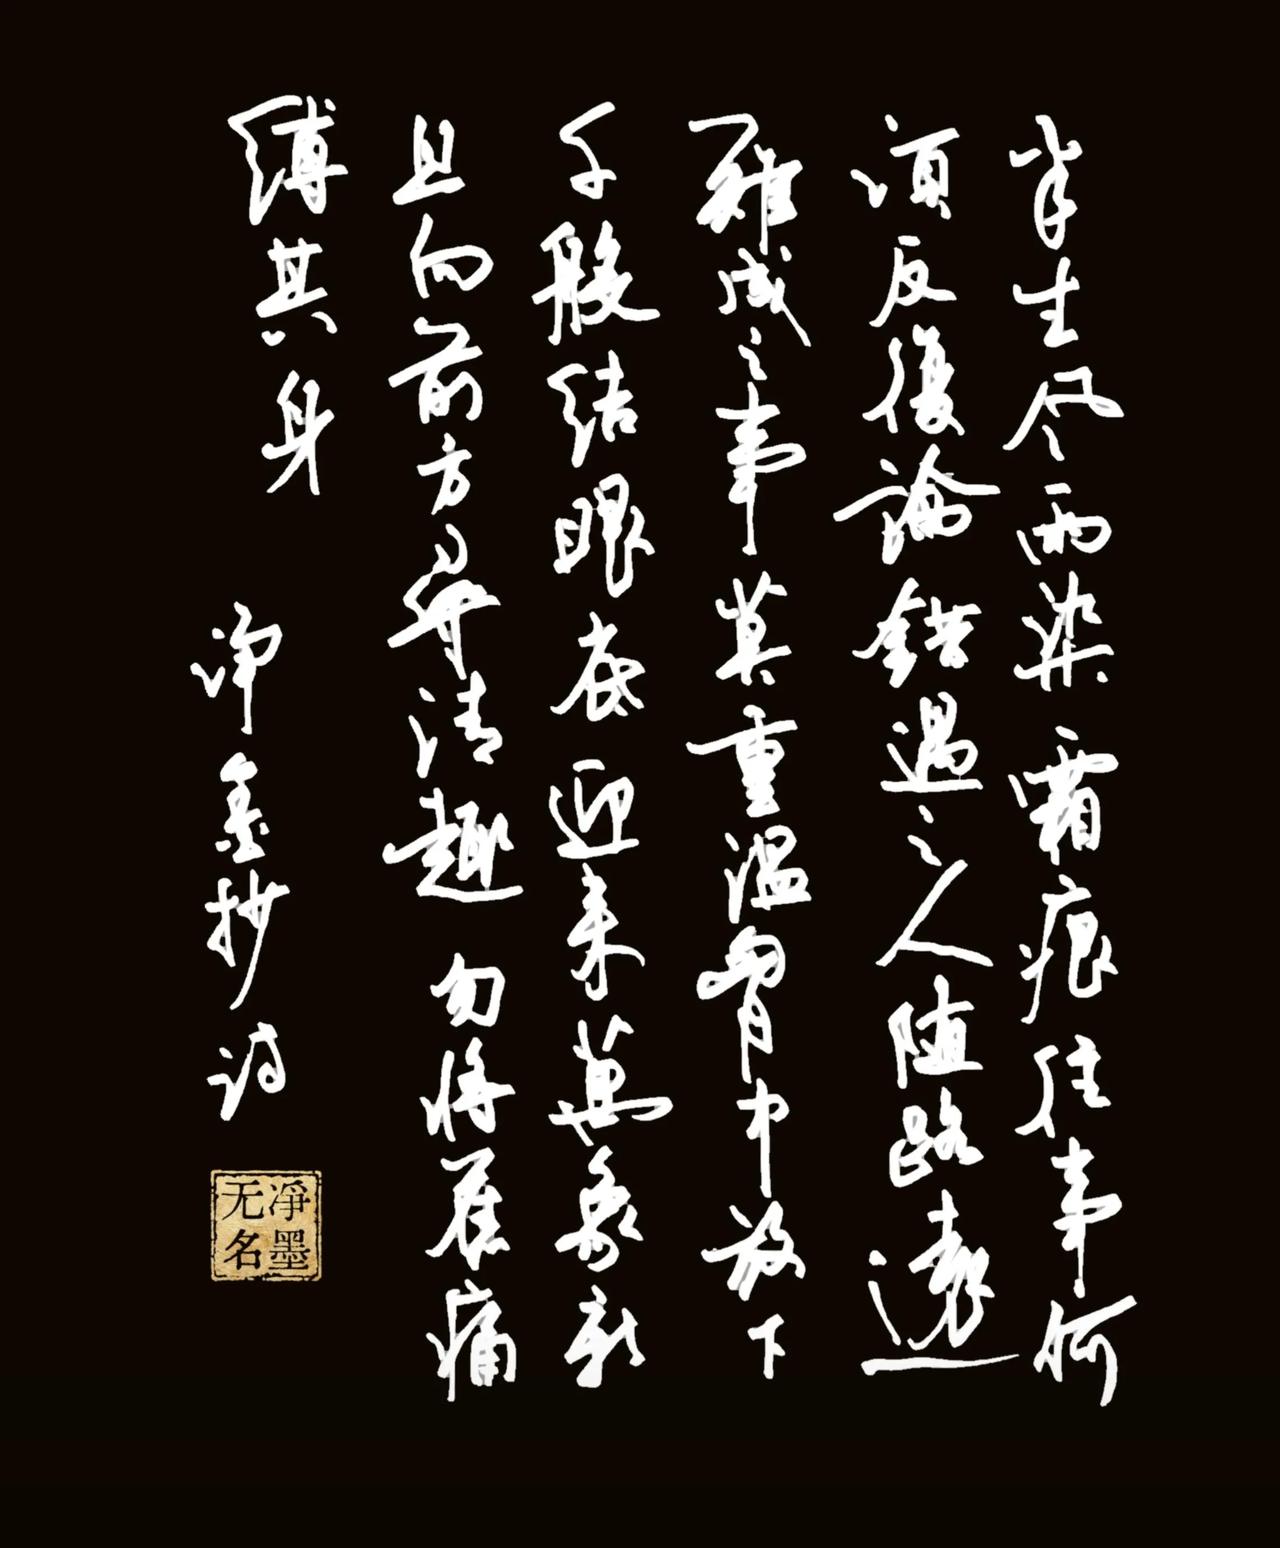 半生风雨染霜痕往事何
须反復論錯過之人随路遠
難成之事莫重溫胷中放下
千般结眼底迎来萬象新
且向前方尋清趣勿将舊痛
缚其身
净墨抄诗
净墨
无名